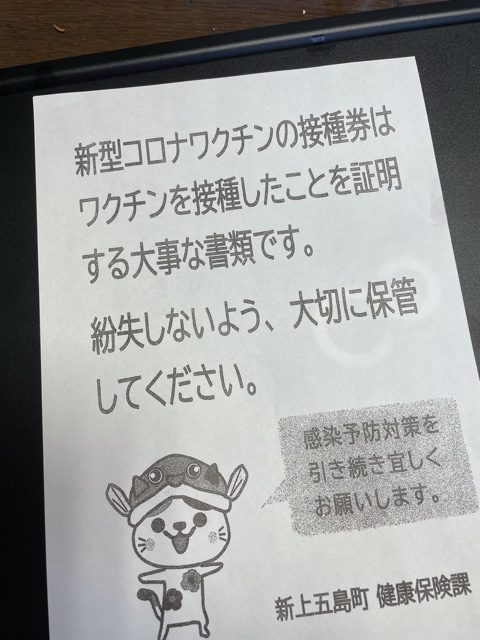 新型コロナワクチンの接種券は
ワクチンを接種したことを証明
する大事な書類です。
紛失しないよう、大切に保管
してください。
感染予防対策を
引き続き宜しく
お願いします。
新上五島町 健康保険課